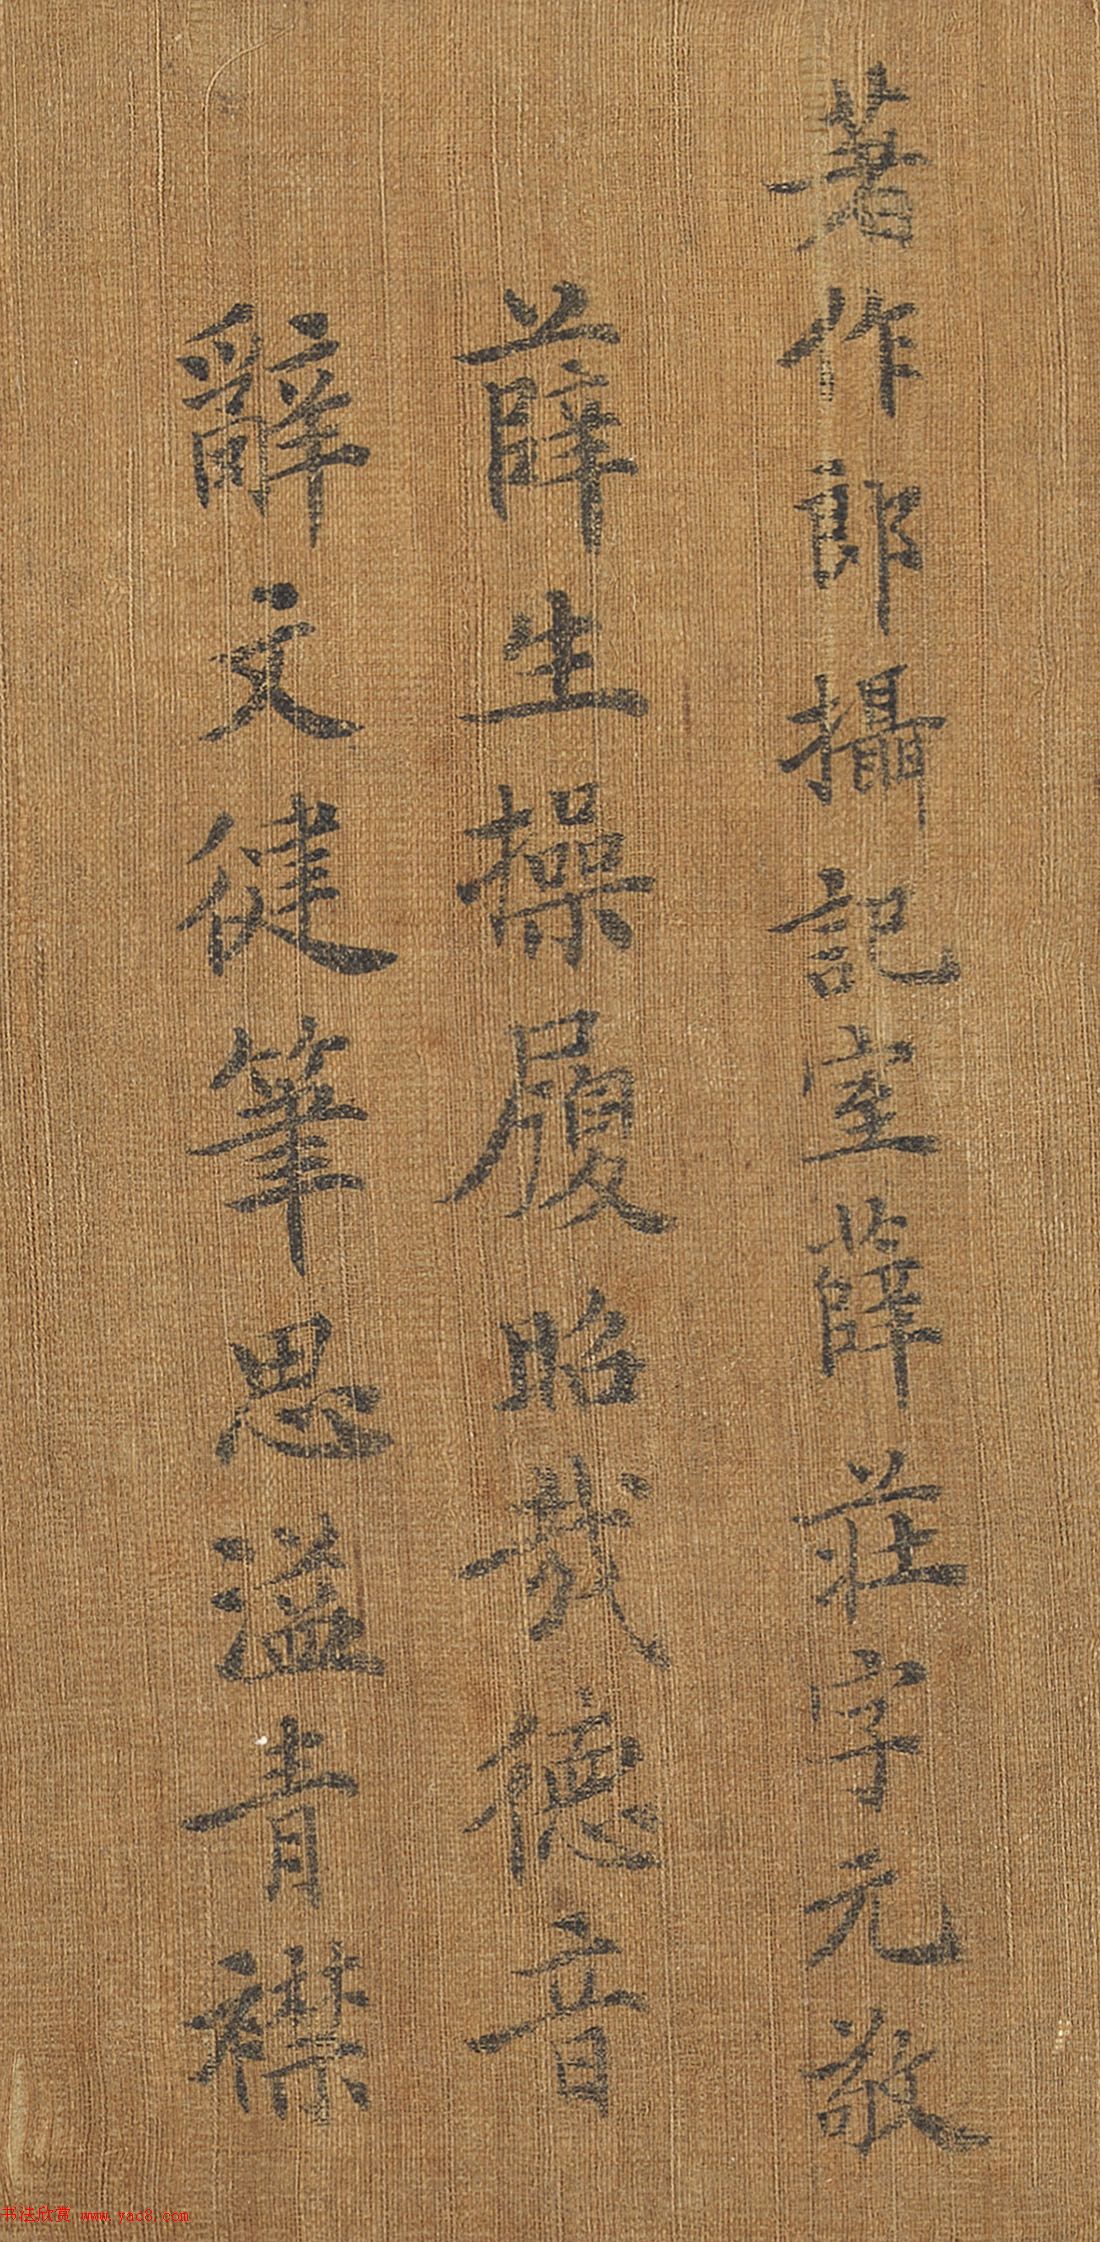 著作郎攝記室薛莊字元敬
薛生操履昭哉德音
辭文健筆思溢青襟
书法欣赏 www.yac8.com